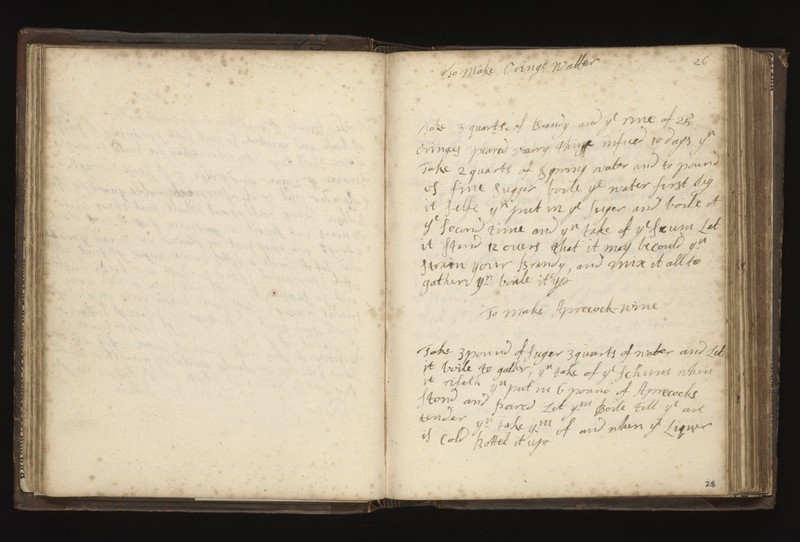 26
To Make Oringe Watter
Take 3 quarts of Brandy and ye rine of 25
Oringes peared vearry thine infuce 10 days yn
Take 2 quarts of Spring water and to pound
of fine Sugger boile ye water first by
it selfe yn put in ye suger and boile it
ye second time and yn take of ye scum Let
it stand 12 ouers that it may be could yn
strain your Brandy, and mix it all to
gather yn botle it up
To make Aprecock-wine
Take 3 pound of suger 3 quarts of water and Let
it boile to gather, yn take of ye schum when
it riseth yn put in 6 pound of Aprecocks
stond and pared Let ym Boile till ye are
tender yn take ym of and when ye Liquer
is Cold Bottel it up
28